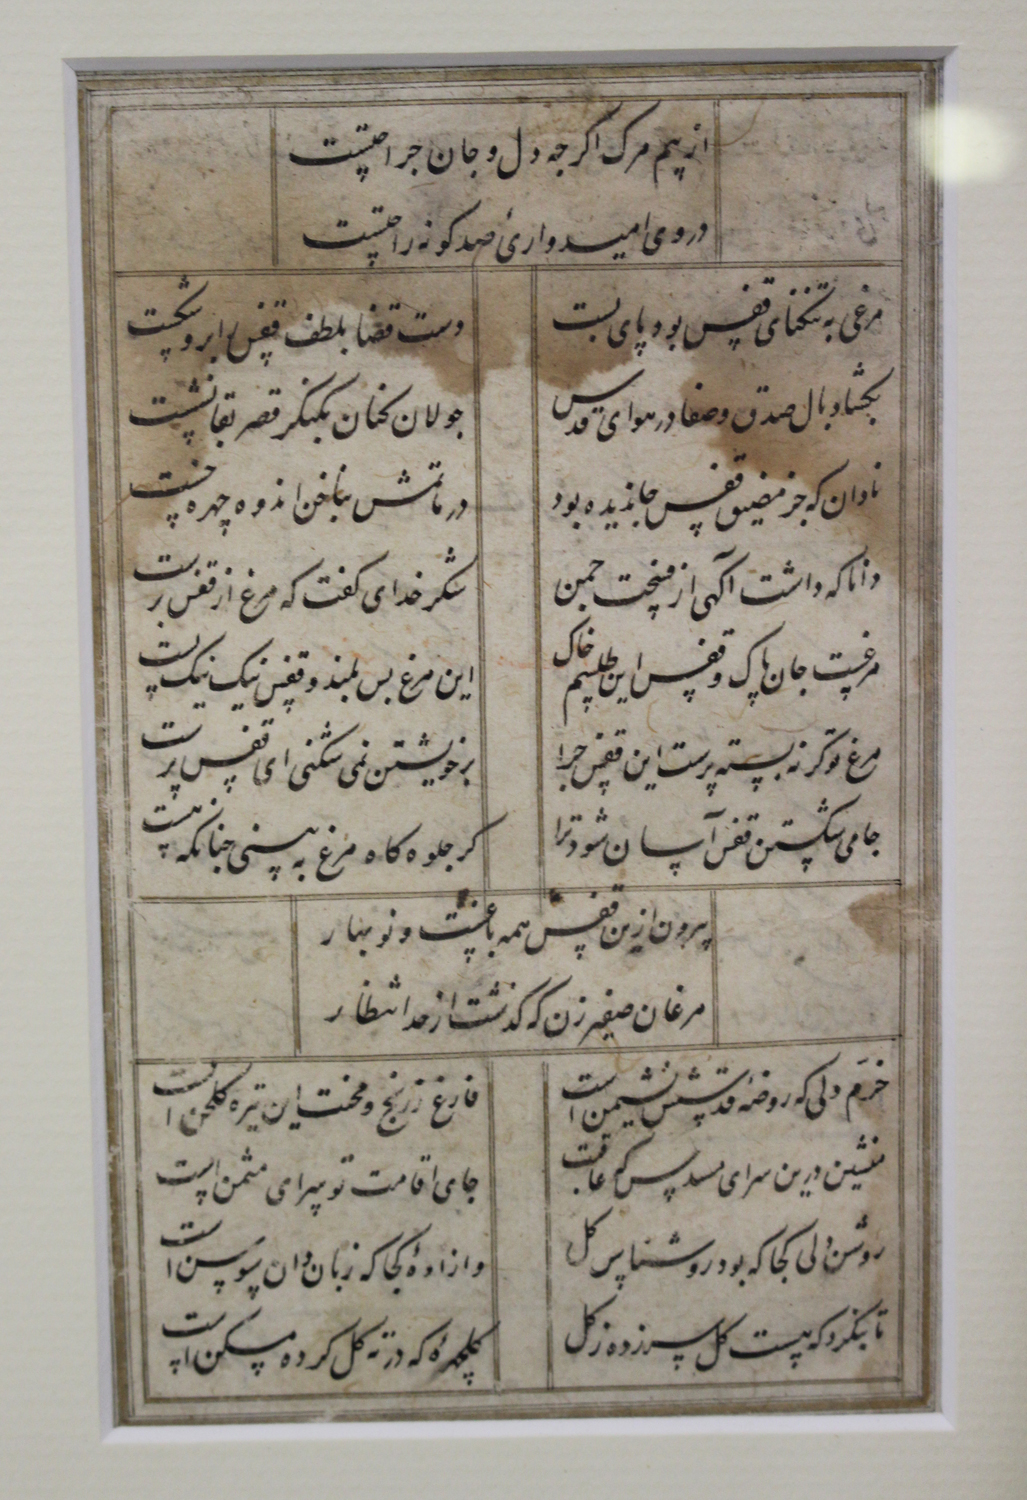 از بیم مرک اکر جه دل و جان جراحتست
در وی امیدواریٔ صد کونه راحتست
مرغی به تنکنای قفس بود پای بست دست قضا بلطف قفس را برو شکست
بکشاد بال صدق و صفا در هوای قدس جولان کنان بکنکر قصر بقا نشست
نادان که جز مضیق قفس جا ندیده بود در ماتمش بناخن اندوه چهره خست
دانا که داشت آکهی از فسحت جمن شکر خدای کفت که مرغ از قفس برست
مرغیست جان پاک و قفس این طلسم خاک این مرغ بس بلند و قفس نیک نیک پست
مرغ تو کر نه بسته پرست این قفس جرا بر خویشتن نمی شکنی ای قفس پرست
جامی شکستن قفس آسان شود ترا کر جلوه کاه مرغ به بینی جنانکه هست
بیرون ازین قفس همه باغست و نوبهار
مرغان صفیر زن که کذشت از حد انتظار
خرّم دلی که روضهٔ قدسش نشیمن است فارغ ز رنج و محنت این تیره کلخن است
منشین درین سرای مسدس که عاقبت جای اقامت تو سرای مثمن است
روشن دلی کجا که بود روشناس کل و ازادهٔ کجا که زبان دان سوسن است
تا بنکرد که چیست کل سر زده ز کل کلچهرهٔ که در ته کل کرده مسکن است